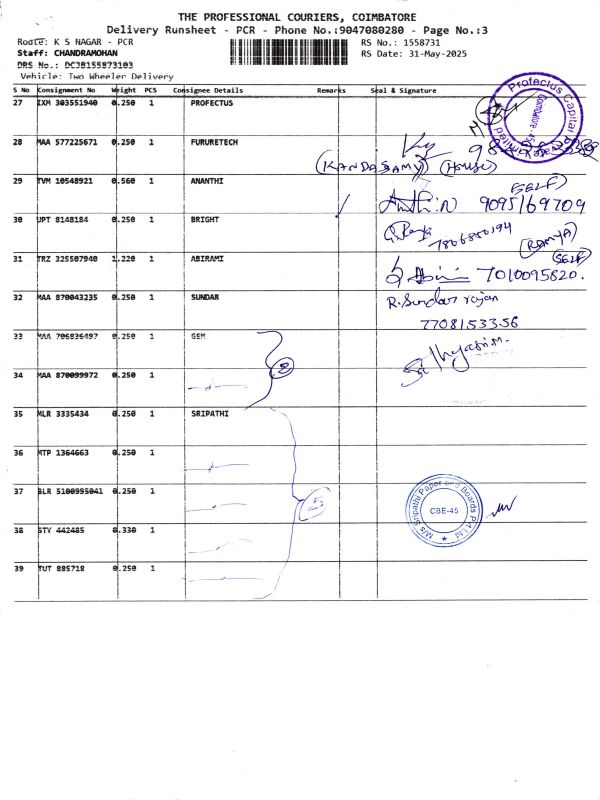 THE PROFESSIONAL COURIERS, COIMBATORE
Delivery Runsheet - PCR - Phone No.:9047080280 - Page No.:3
Route: K S NAGAR - PCR
RS No.: 1558731
Staff: CHANDRAMOHAN
RS Date: 31-May-2025
DRS No.: DCJB155873103
Vehicle: Two Wheeler Delivery
S No Consignment No Weight PCS Consignee Details Remarks Seal & Signature
27 IXM 303551940 0.250 1 PROFECTUS
Profectus Capital
28 MAA 577225671 0.250 1 FURURETECH
(KANDASAMY) (House)
29 TVM 10548921 0.560 1 ANANTHI
(SELF)
9095169709
30 UPT 8148184 0.250 1 BRIGHT
(RAMYA)
31 TRZ 325507940 1.220 1 ABIRAMI
(SELF)
7010095820.
32 MAA 870043235 0.250 1 SUNDAR
R. Sundar rajan
7708153356
33 MAA 706936497 0.250 1 GEM
2
34 MAA 870099972 0.250 1
35 MLR 3335434 0.250 1 SRIPATHI
36 MTP 1364663 0.250 1
37 BLR 5100995041 0.250 1
5
M/s Sripathi Paper and Boards Pvt Ltd
CBE-45
38 STY 442485 0.330 1
39 TUT 885718 0.250 1